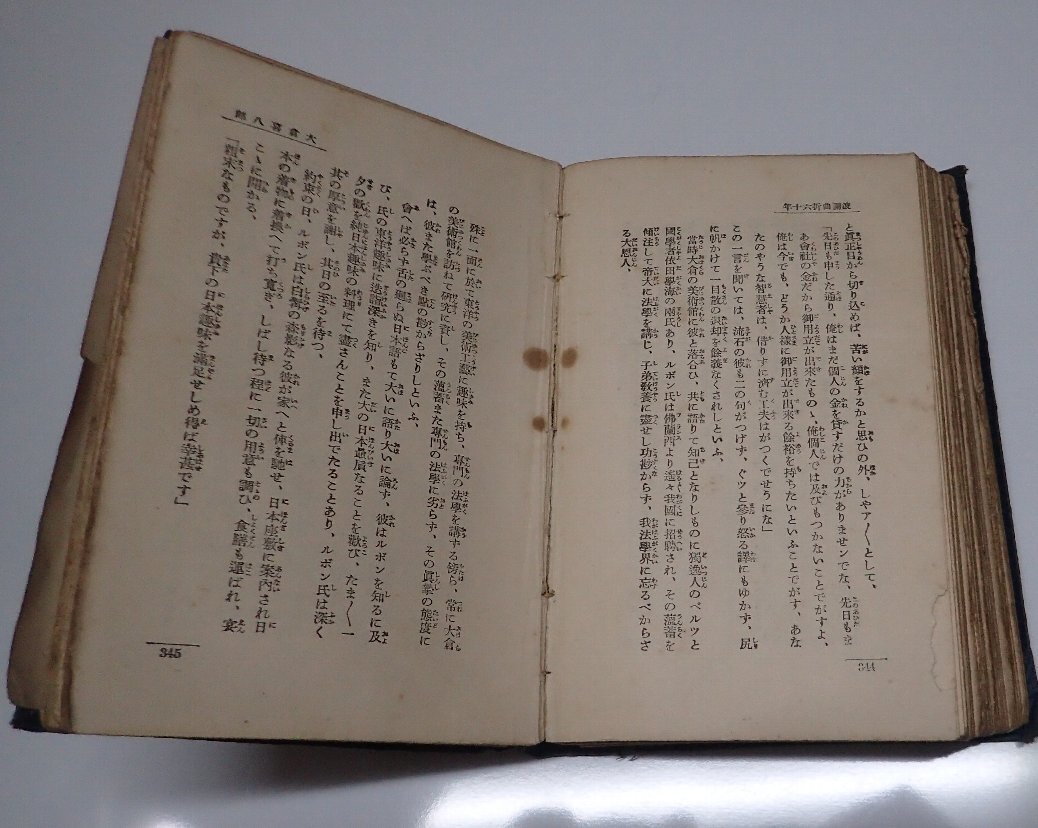 波瀾曲折六十年
と眞正面から切り込めば、苦い顔をするかと思ひの外、しやア〳〵として、
「先日も申した通り、俺はまだ個人の金を貸すだけの力がありませンでな、先日もま
あ會社の金だから御用立が出來たものゝ、俺個人では及びもつかないことでがすよ、
俺は今でも、どうか人樣に御用立が出來る餘裕を持ちたいといふことでがす、あな
たのやうな智慧者は、借りずに濟む工夫はがつくでせうにな」
この一言を聞いては、流石の彼も二の句がつげず、ぐツと參り怒る譯にもゆかず、尻
に帆かけて一目散の退却を餘義なくされしといふ、
當時大倉の美術館に彼と落合ひ、共に語りて知己となりしものに獨逸人のベルツと
國學者依田學海の兩氏あり、ルボン氏は佛蘭西より遙々我國に招聘され、その蘊蓄を
傾注して帝大に法學を講じ、子弟敎養に盡せし功尠からず、我法學界に忘るべからざ
る大恩人、
344
大倉喜八郎
殊に一面に於て東洋の美術工藝に趣味を持ち、專門の法學を講ずる傍ら、常に大倉
の美術館を訪ねて研究に資し、その蘊蓄また專門の法學に劣らず、その眞摯の態度に
は、彼また學ぶべき點の尠からざりしといふ、
會へば必らず舌の廻らぬ日本語もて大いに語り大いに論ず、彼はルボンを知るに及
び、氏の東洋趣味に造詣深きを知り、また大の日本贔屓なることを歡び、たま〳〵一
夕の歡を純日本趣味の料理にて盡さんことを申し出でたることあり、ルボン氏は深く
其の厚意を謝し、其日の至るを待つ、
約束の日、ルボン氏は白髯の森影なる彼が家へと俥を馳せ、日本座敷に案内され日
本の着物に着換へて打ち寬ぎ、しばし待つ程に一切の用意も調ひ、食膳も運ばれ、宴
こゝに開かる、
「粗末なものですが、貴下の日本趣味を滿足せしめ得ば幸甚です」
345